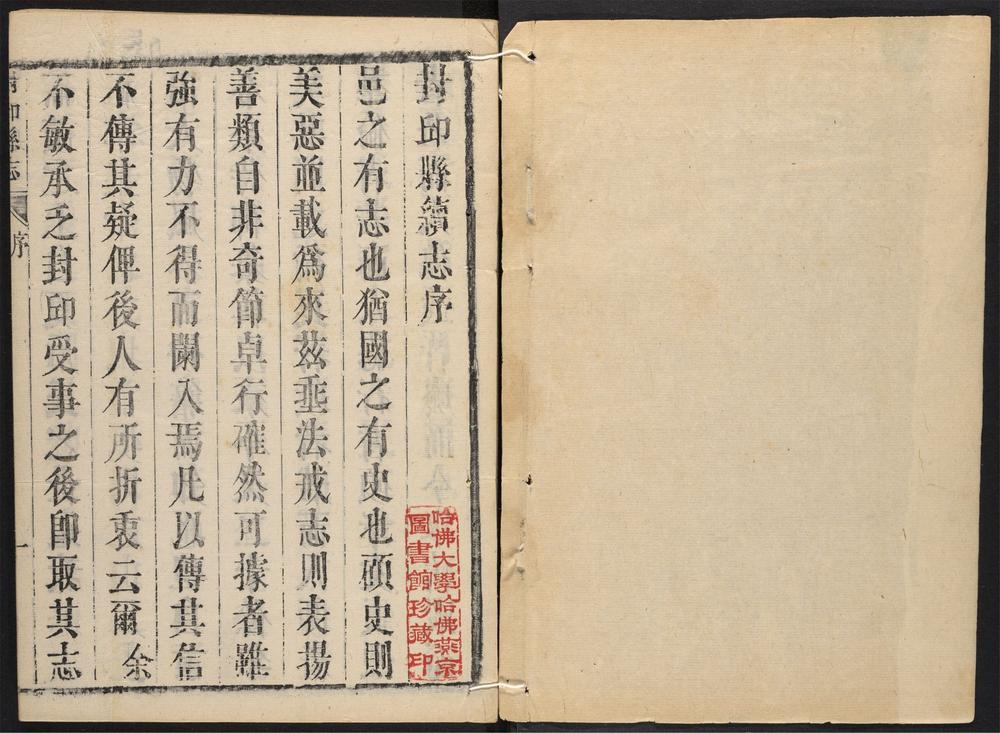 封印縣續志序
邑之有志也猶國之有史也顧史則
美惡並載爲來茲垂法戒志則表揚
善類自非奇節卓行確然可據者雖
強有力不得而闌入焉凡以傳其信
不傳其疑俾後人有所折衷云爾　余
不敏承乏封卭受事之後卽取其志
縣志
序
一
哈佛大學哈佛燕京
圖書館珍藏印